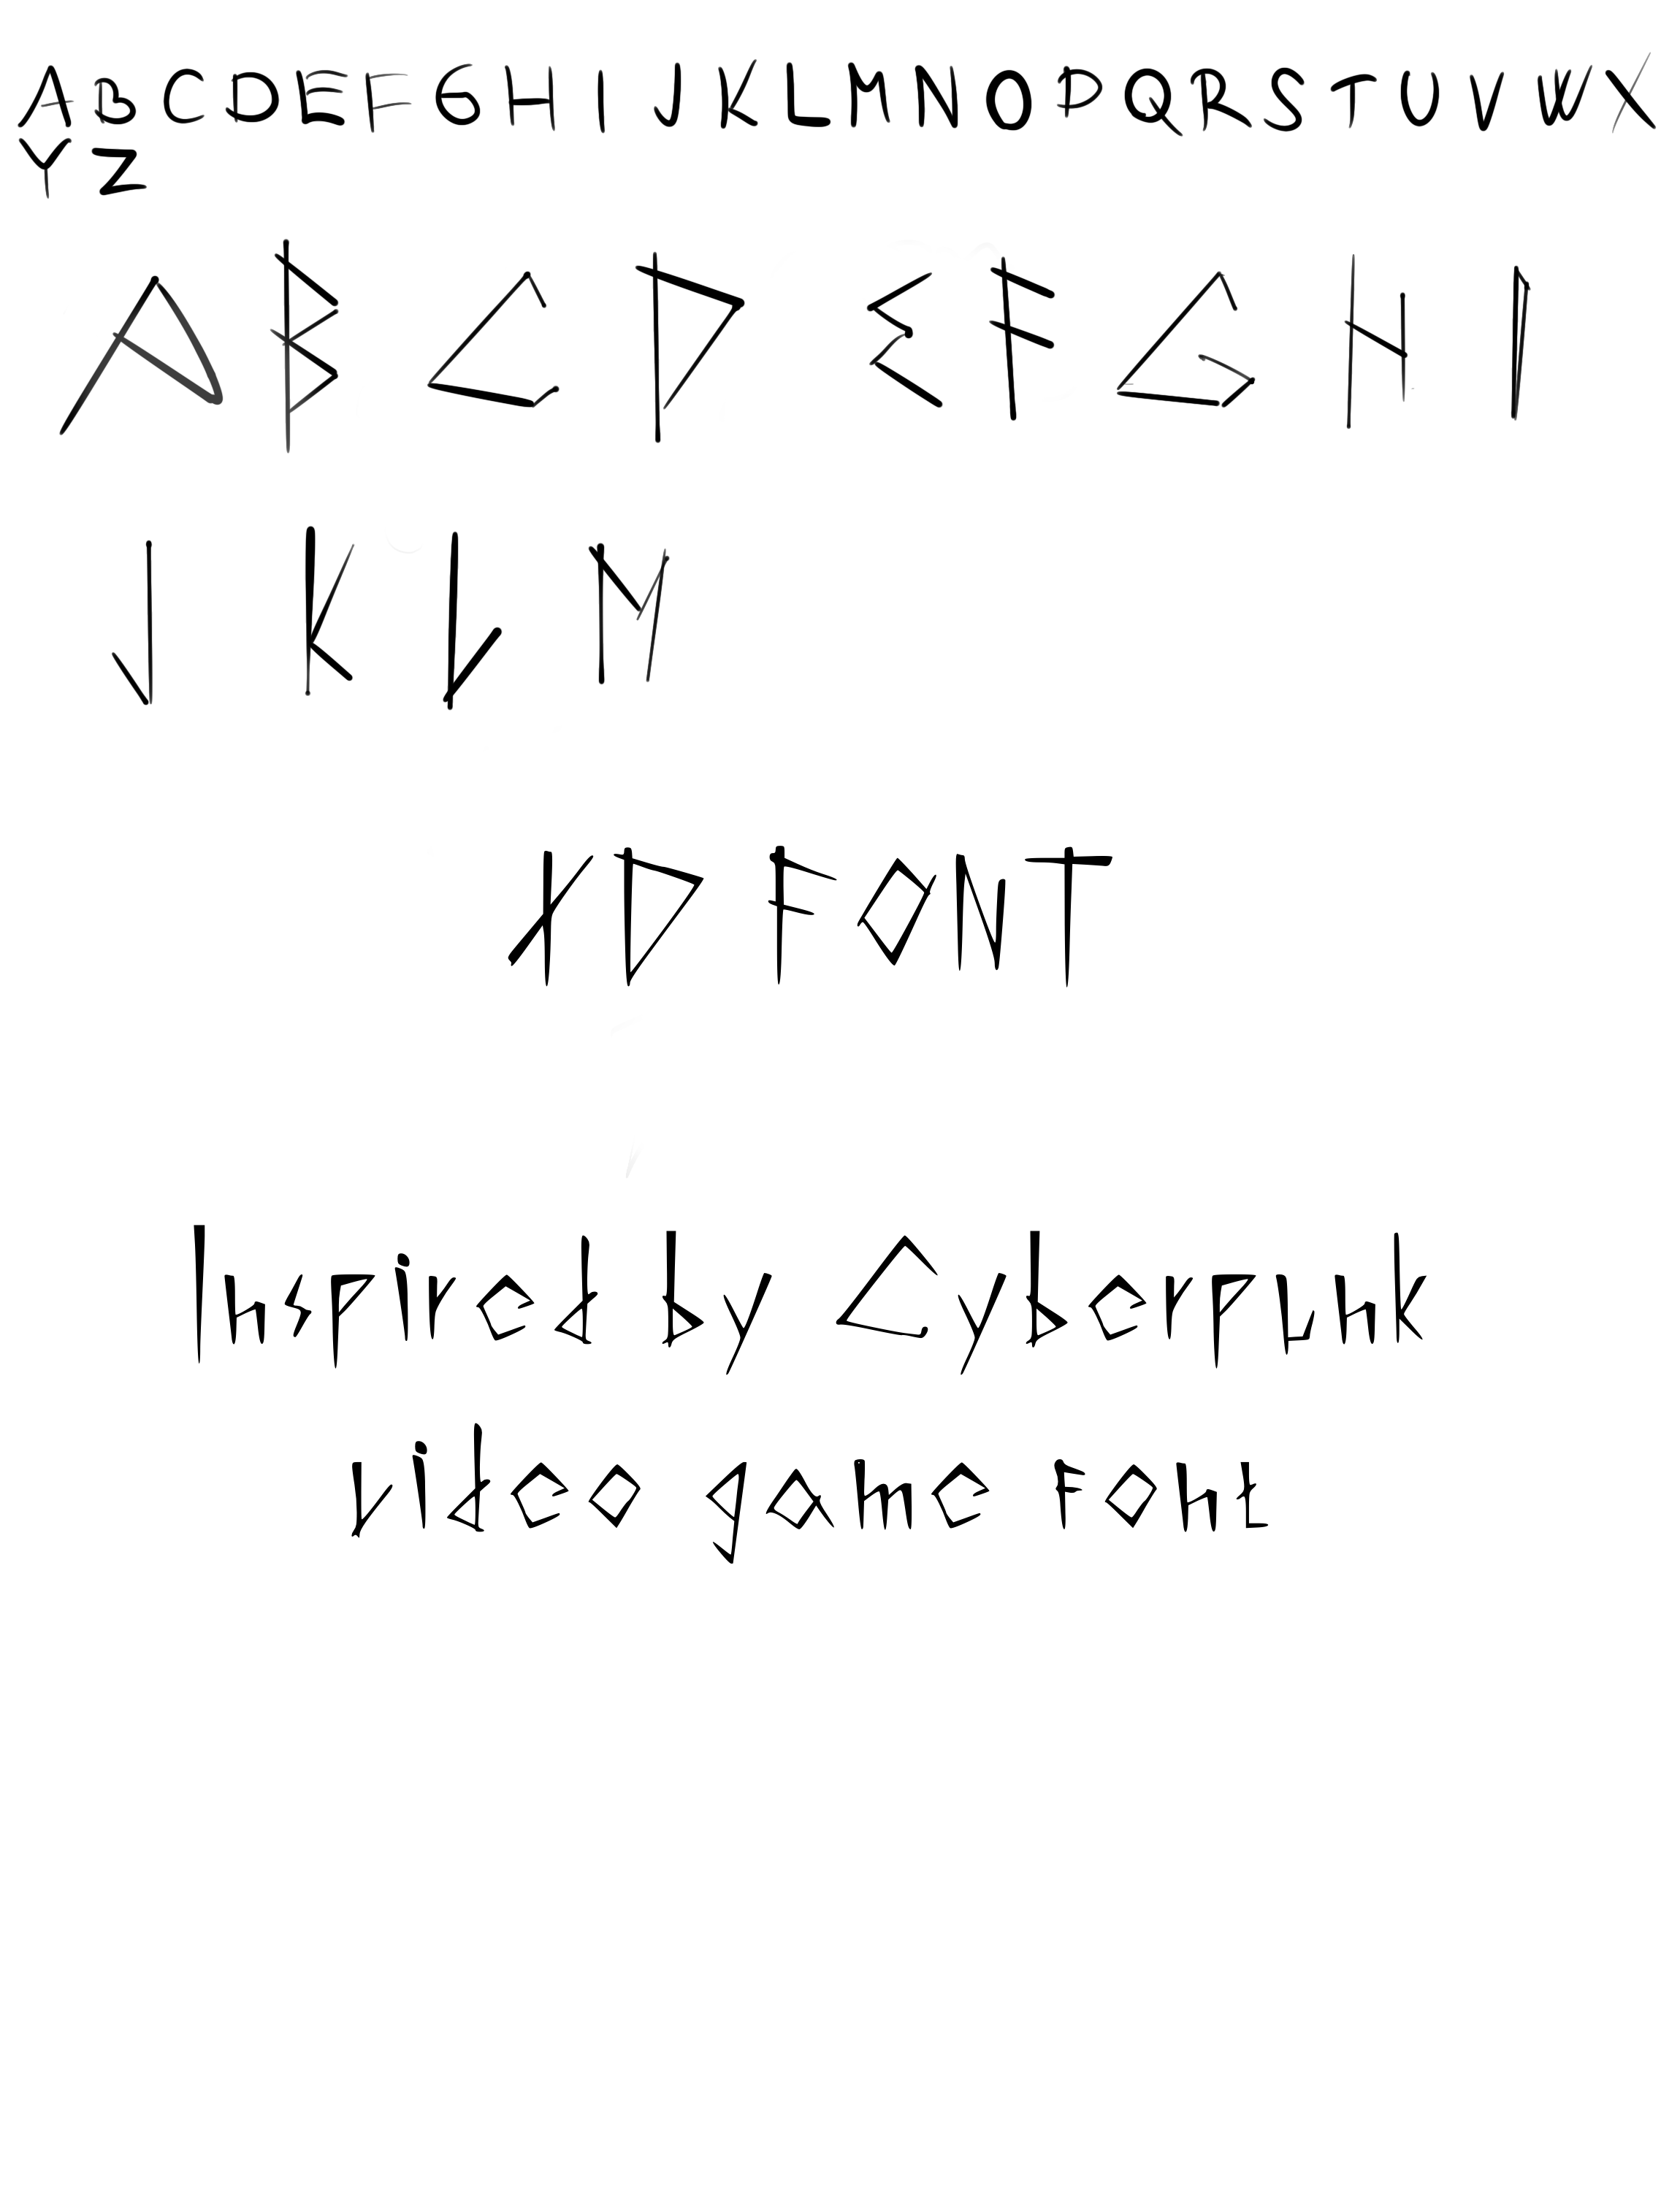 A B C D E F G H I J K L M N O P Q R S T U V W X
Y Z
A B C D E F G H I
J K L M
XD FONT
Inspired by Cyberpunk
video game font